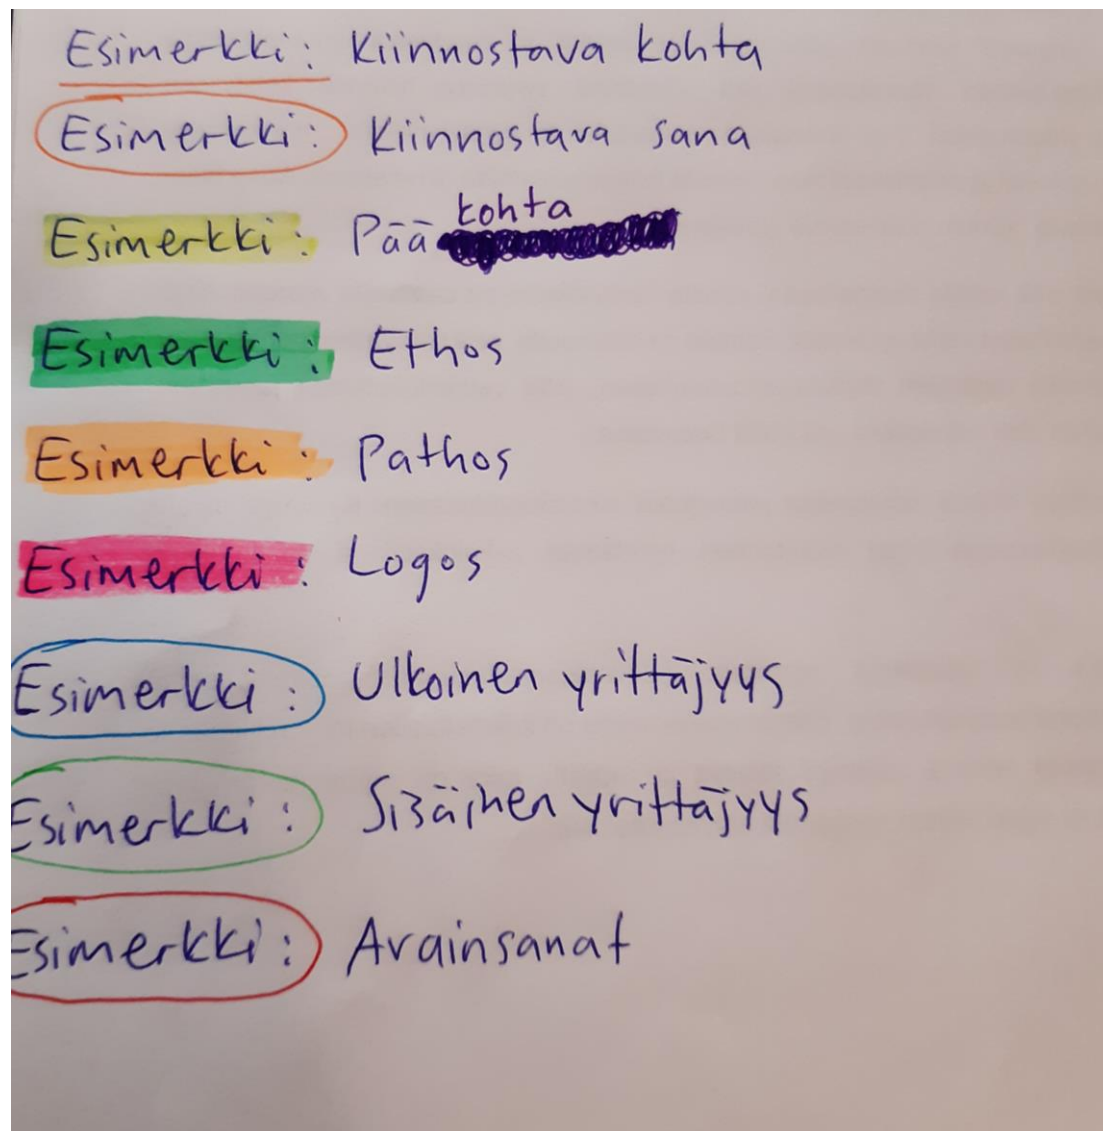 Esimerkki: Kiinnostava kohta
Esimerkki: Kiinnostava sana
Esimerkki: Pääkohta
Esimerkki: Ethos
Esimerkki: Pathos
Esimerkki: Logos
Esimerkki: Ulkoinen yrittäjyys
Esimerkki: Sisäinen yrittäjyys
Esimerkki: Avainsanat